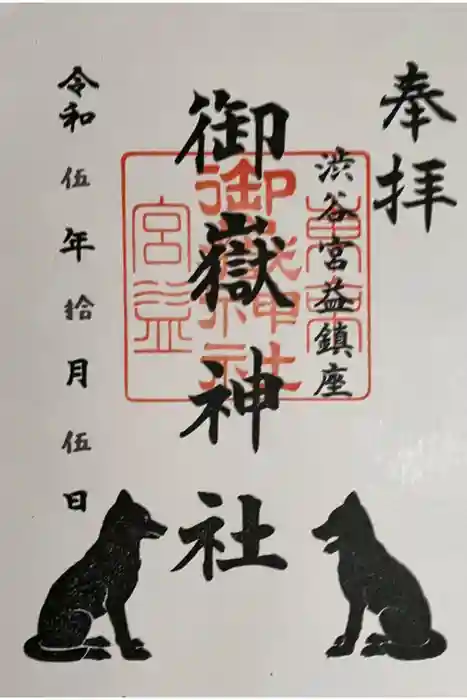 奉拝
渋谷宮益鎮座
御嶽神社
東京
御嶽神社
宮益
令和伍年拾月伍日